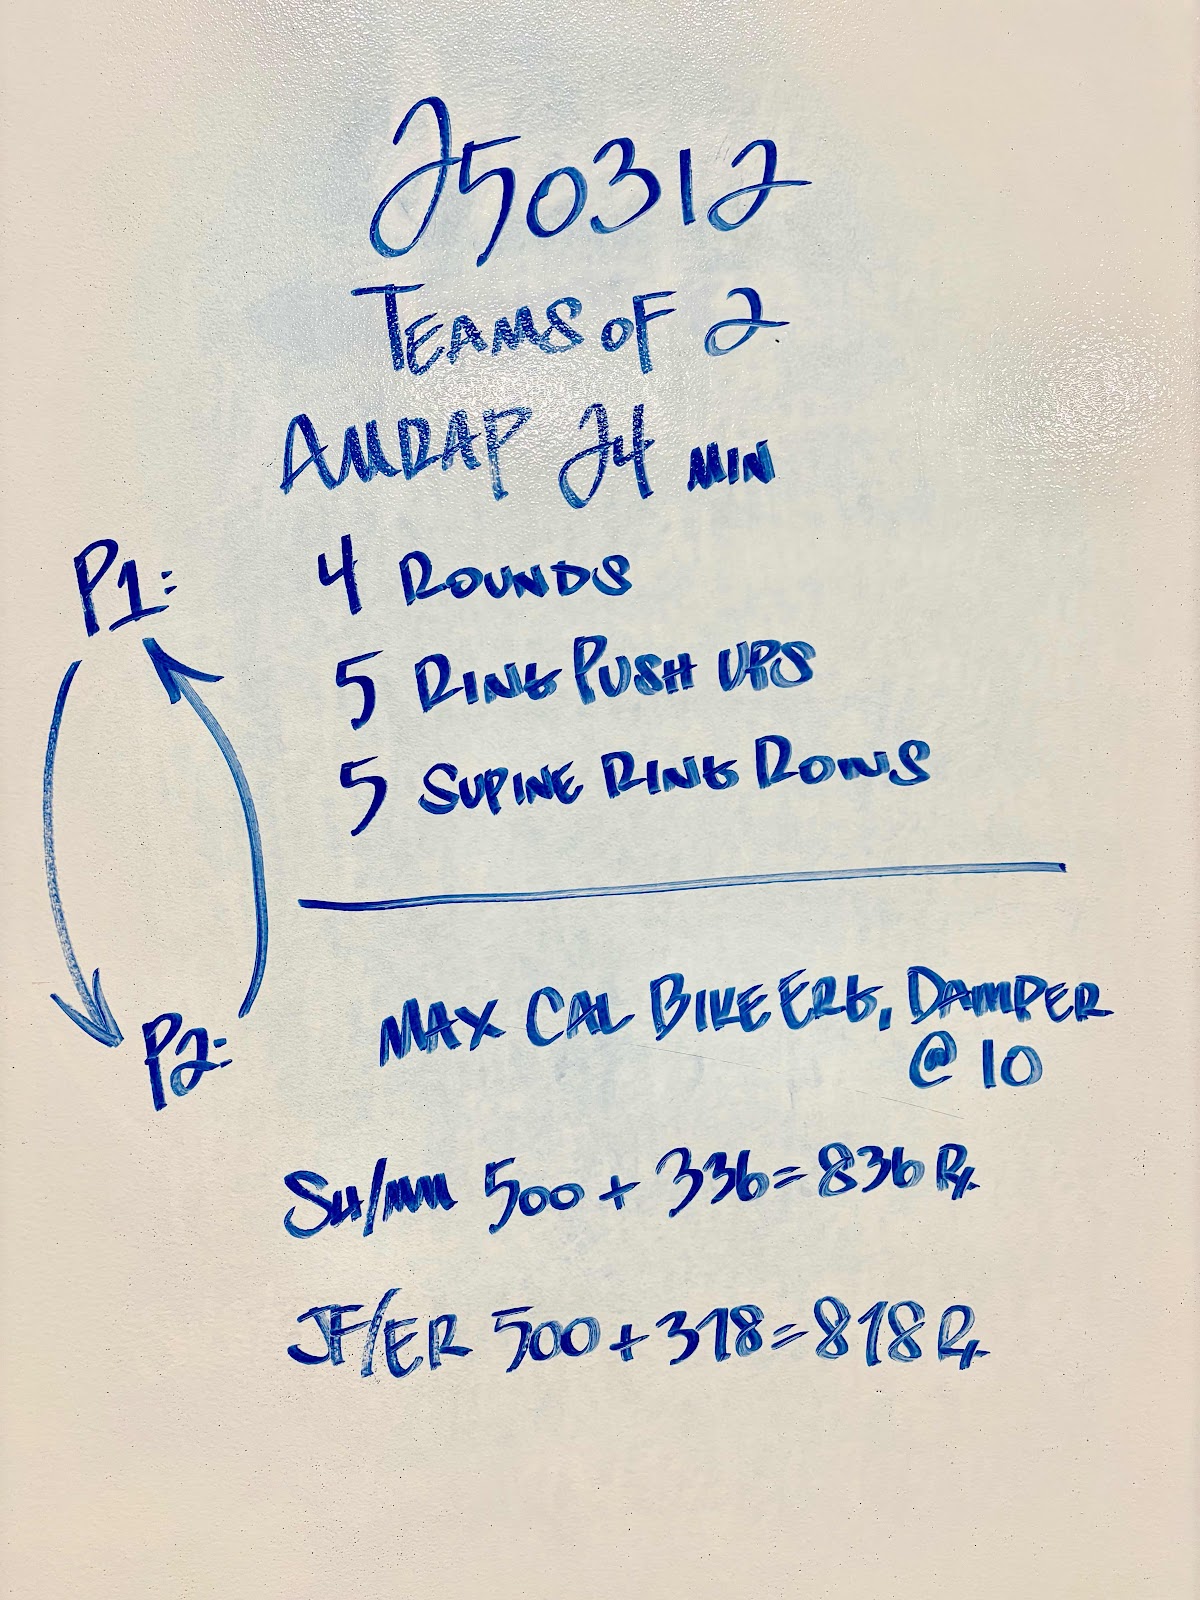 250312
TEAMS OF 2
AMRAP 24 MIN
P1: 4 ROUNDS
5 RING PUSH UPS
5 SUPINE RING ROWS
P2: MAX CAL BIKE ERG, DAMPER
@ 10
SH/MM 500 + 336 = 836 Rx
JF/ER 500 + 318 = 818 Rx